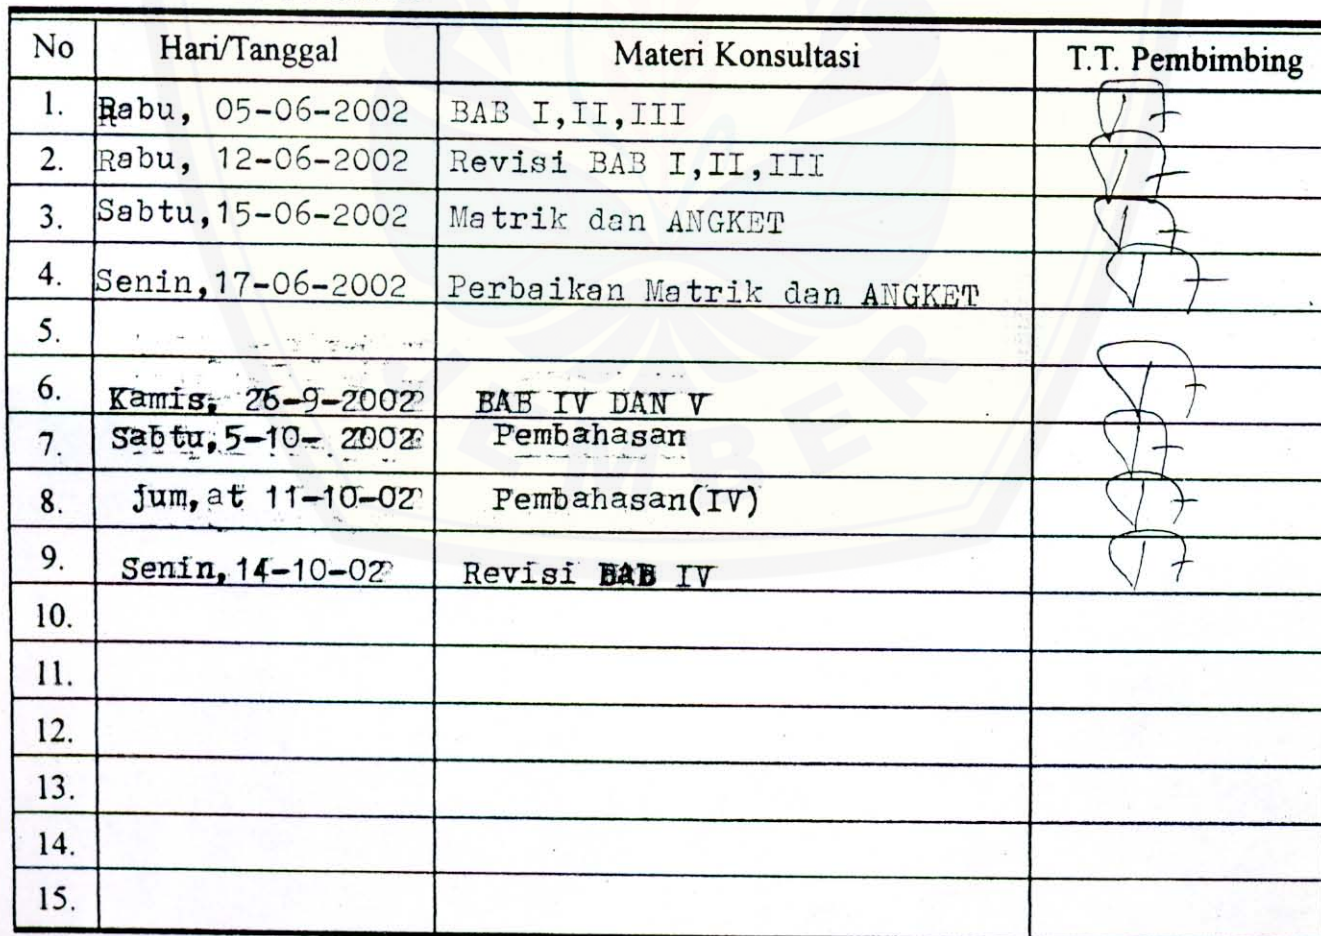 No Hari/Tanggal Materi Konsultasi T.T. Pembimbing
1. Rabu, 05-06-2002 BAB I,II,III
2. Rabu, 12-06-2002 Revisi BAB I,II,III
3. Sabtu,15-06-2002 Matrik dan ANGKET
4. Senin,17-06-2002 Perbaikan Matrik dan ANGKET
5.
6. Kamis, 26-9-2002 BAB IV DAN V
7. Sabtu,5-10- 2002 Pembahasan
8. jum,at 11-10-02 Pembahasan(IV)
9. Senin,14-10-02 Revisi BAB IV
10.
11.
12.
13.
14.
15.
JEMBER